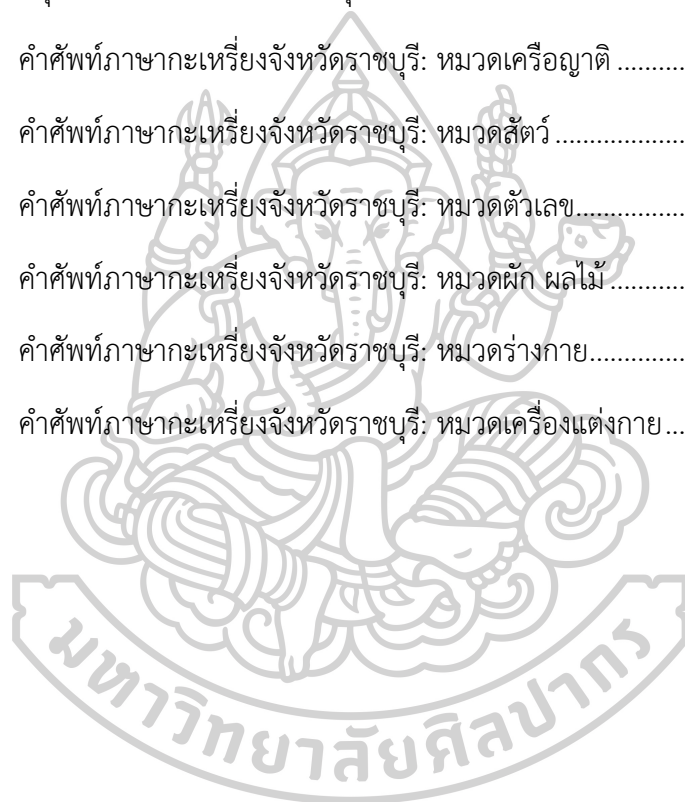 คำศัพท์ภาษากะเหรี่ยงจังหวัดราชบุรี: หมวดเครือญาติ ..........
คำศัพท์ภาษากะเหรี่ยงจังหวัดราชบุรี: หมวดสัตว์ ...................
คำศัพท์ภาษากะเหรี่ยงจังหวัดราชบุรี: หมวดตัวเลข................
คำศัพท์ภาษากะเหรี่ยงจังหวัดราชบุรี: หมวดผัก ผลไม้ ...........
คำศัพท์ภาษากะเหรี่ยงจังหวัดราชบุรี: หมวดร่างกาย..............
คำศัพท์ภาษากะเหรี่ยงจังหวัดราชบุรี: หมวดเครื่องแต่งกาย ...
มหาวิทยาลัยศิลปากร